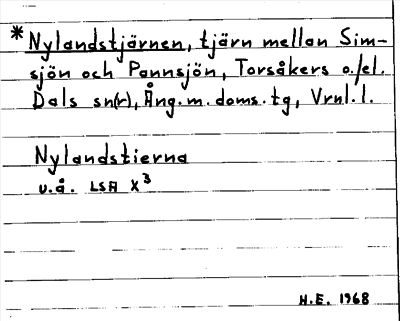 *Nylandstjärnen, tjärn mellan Sim-
sjön och Pannsjön, Torsåkers o./el.
Dals sn(r), Ång. m. doms. tg, Vrnl. l.
Nylandstierna
u.å. LSA X³
H.E. 1968